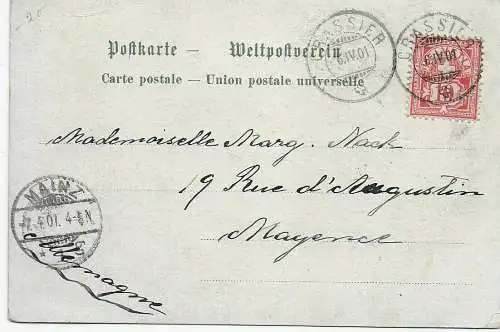 -20
Postkarte — Weltpostverein
Carte postale — Union postale universelle
CRASSIER
6.IV.01
CRASSIER
6.IV.01
10
Mademoiselle Marg. Nack
19 Rue d'Augustin
Mayence
Allemagne
MAINZ
-7.4.01. 4-5N.